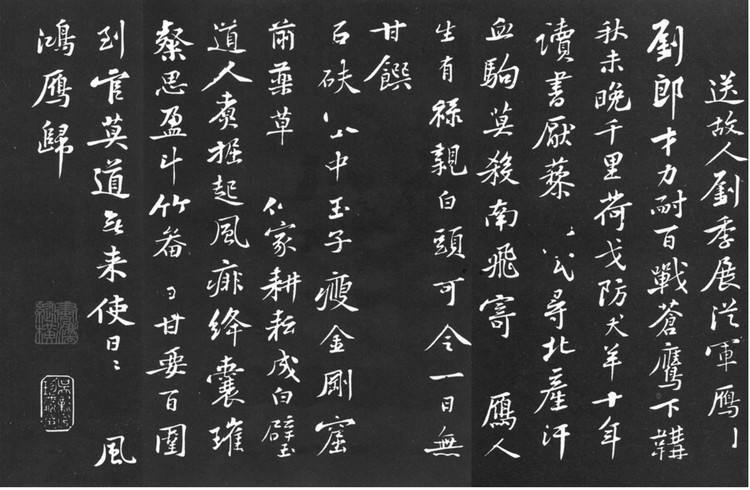 送故人劉季展從軍鴈
劉郎才力耐百戰蒼鷹下韝
秋未晚千里荷戈防犬羊十年
讀書厭藜 尋北產汗
血駒莫殺南飛寄 鴈人
生有祿親白頭可令一日無
甘饌
石砆谷中玉子瘦金剛窟
前藥草 家耕耘成白璧
道人煮掘起風痱絳囊璀
粲思盈斗竹畚 甘要百圍
到官莫道無來使日〻 風
鴻鴈歸